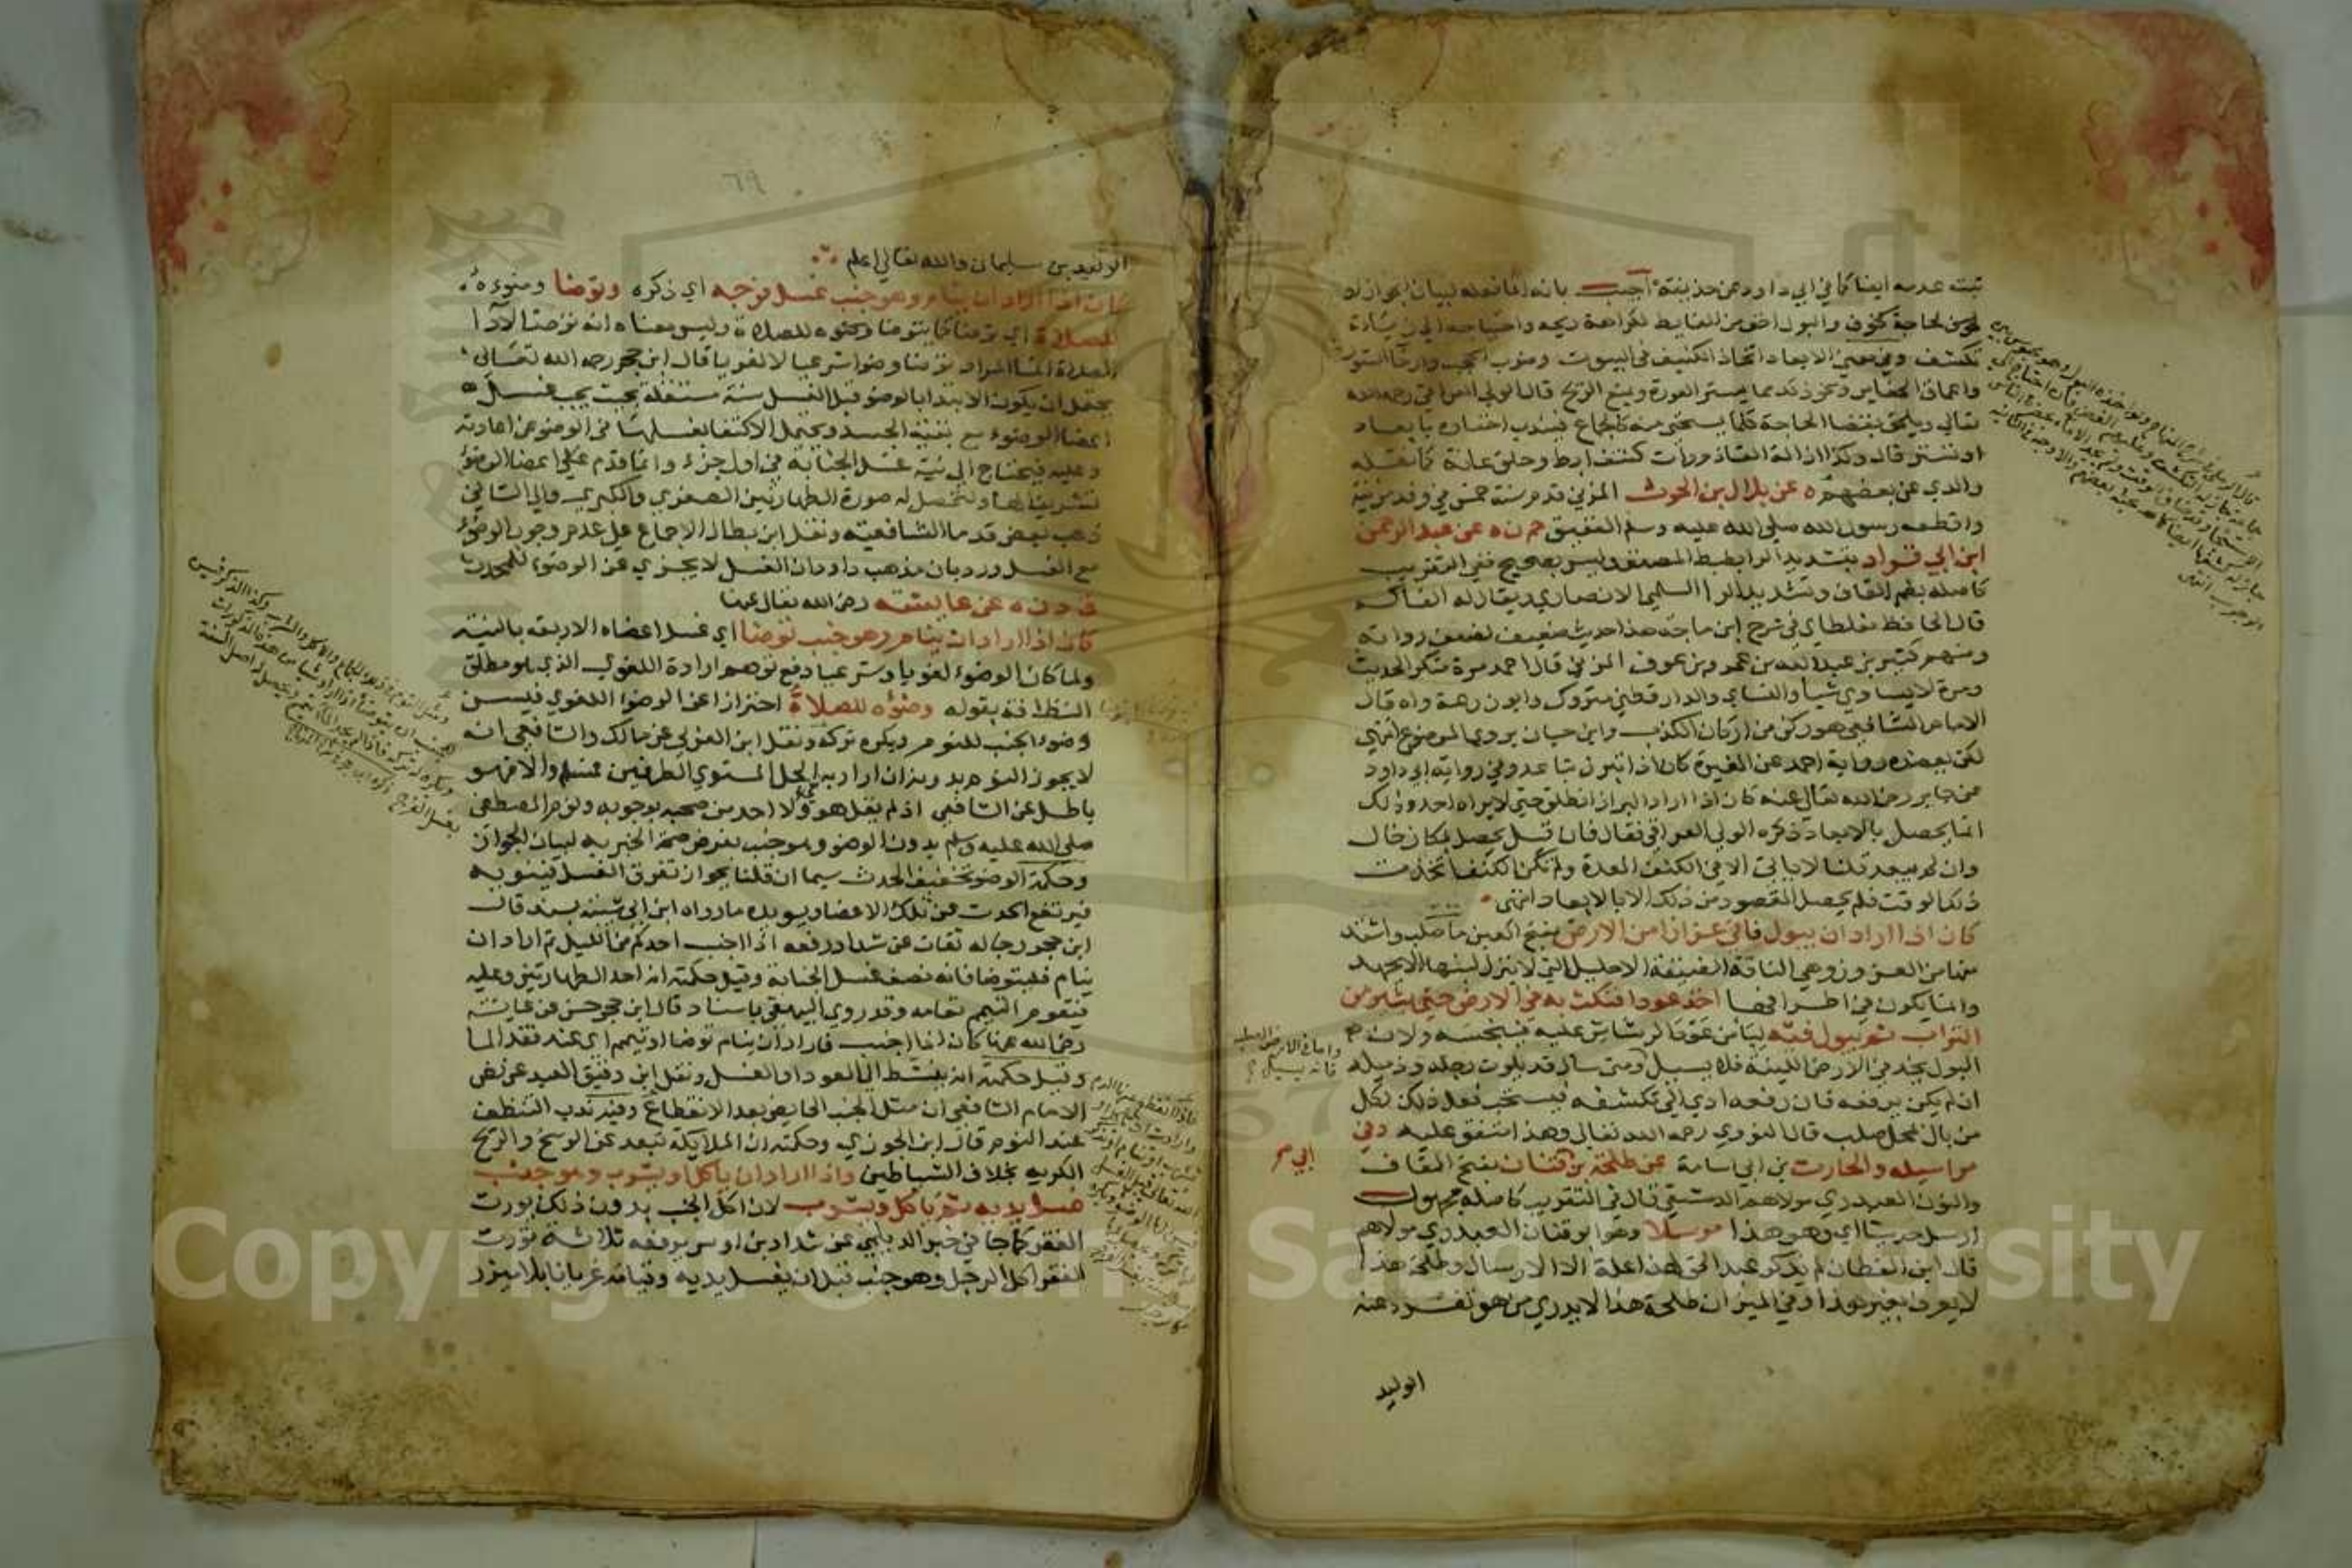 ثبت عدمه ايضا كما في ابي داود عن حذيفة اجيب بانه انما فعله لبيان الجواز او
لحاجة كخوف والبول اخف من الغايط لكراهة ريحه واحتياجه الى زيادة
تكشف وفي معنى الابعاد اتخاذ الكنيف في البيوت وضرب الحجب وارخا الستور
واعماق الحفاير ونحو ذلك مما يستر العورة ويمنع الريح قال الولي العراقي رحمه الله
تعالى ويلحق بقضا الحاجة كلما يستحيى منه كالجماع فيندب اخفاوه بابعاد
او تستر قال وكذا ازالة القاذورات كنتف ابط وحلق عانة كما نقله
والدي عن بعضهم ه عن بلال بن الحرث المزني قدم سنة خمس في وفد مزينة
واقطعه رسول الله صلى الله عليه وسلم العقيق حم ن ه عن عبد الرحمن
ابن ابي قراد بتشديد الرا بضبط المصنف وليس بصحيح ففي التقريب
كاصله بضم القاف وتشديد الرا السلمي الانصاري يقال له الفاكه
قال الحافظ مغلطاي في شرح ابن ماجة هذا حديث ضعيف لضعف رواته
ومنهم كثير بن عبد الله بن عمرو بن عوف المزني قال احمد مرة منكر الحديث
ومرة لا يساوي شيا والنساي والدارقطني متروك وابو زرعة واه قال
الامام الشافعي هو ركن من اركان الكذب وابن حبان يروي الموضوع انتهى
لكن يعضده رواية احمد عن المغيرة كان اذا تبرز تباعد وفي رواية ابي داود
عن جابر رضي الله تعالى عنه كان اذا اراد البراز انطلق حتى لا يراه احد وذلك
انما يحصل بالابعاد ذكره الولي العراقي فقال فان قيل يحصل بمكان خال
وان لم يبعد قلنا لا ياتي الا في الكنف المعدة ولم تكن الكنف اتخذت
ذلك الوقت فلم يحصل المقصود من ذلك الا بالابعاد انتهى
كان اذا اراد ان يبول فاتى عزازا من الارض بفتح العين ما صلب واشتد
منها من العزوز وهي الناقة الضيقة الاحليل التي لا ينزل لبنها الا بجهد
وانما يكون في اطرافها اخذ عودا فنكث به في الارض حتى يثير من
التراب ثم يبول فيه ليامن عود الرشاش عليه فينجسه ولان
البول يخد في الارض اللينة فلا يسيل ومتى سال قد يلوث رجله وذيله
ان لم يكن يرفعه فان رفعه ادى الى تكشفه فيستحب فعل ذلك لكل
من بال لمحل صلب قال النووي رحمه الله تعالى وهذا متفق عليه د في
مراسيله والحارث بن ابي اسامة عن طلحة بن قنان بفتح القاف
والنون العبدري مولاهم الدمشقي قال في التقريب كاصله مجهول
ارسل حديثا اي وهو هذا مرسلا وهو ابو قنان العبدري مولاهم
قال ابن القطان لم يذكر عبد الحق لهذا علة الا الارسال وطلحة هذا
لا يعرف بغير هذا وفي الميزان طلحة هذا لا يدرى من هو تفرد عنه
الوليد
٦٩
الوليد بن سليمان والله تعالى اعلم
كان اذا اراد ان ينام وهو جنب غسل فرجه اي ذكره وتوضا وضوءه
للصلاة اي توضا كما يتوضا وضوءه للصلاة وليس معناه انه توضا لادا
الصلاة انما المراد توضا وضوا شرعيا لا لغويا قال ابن حجر رحمه الله تعالى
يحتمل ان يكون الابتدا بالوضو قبل الغسل سنة مستقلة بحيث يجب غسل
اعضا الوضوء مع بقية الجسد ويحتمل الاكتفا بغسلها في الوضو عن اعادته
وعليه فيحتاج الى نية غسل الجنابة في اول جزء وانما قدم على اعضا الوضوء
تشريفا لها ولتحصل له صورة الطهارتين الصغرى والكبرى والى الثاني
ذهب بعض قدما الشافعية ونقل ابن بطال الاجماع على عدم وجوب الوضوء
مع الغسل ورد بان مذهب داود ان الغسل لا يجزي عن الوضوء للمحدث
ق د ن ه عن عايشة رضي الله تعالى عنها
كان اذا اراد ان ينام وهو جنب توضا اي غسل اعضاه الاربعة بالنية
ولما كان الوضوء لغويا وشرعيا دفع توهم ارادة اللغوي الذي هو مطلق
النظافة بقوله وضوءه للصلاة احترازا عن الوضوء اللغوي فيسن
وضوء الجنب للنوم ويكره تركه ونقل ابن العربي عن مالك والشافعي انه
لا يجوز النوم بدونه ان اراد به الحل المستوي الطرفين فمسلم والا فهو
باطل عن الشافعي اذ لم يقل هو ولا احد من صحبه بوجوبه ونوم المصطفى
صلى الله عليه وسلم بدون الوضو وهو جنب بفرض صحة الخبر به لبيان الجواز
وحكمة الوضو تخفيف الحدث سيما ان قلنا بجواز تفرق الغسل فينويه
فيرتفع الحدث عن تلك الاعضا ويويده ما رواه ابن ابي شيبة بسند قال
ابن حجر رجاله ثقات عن شداد رفعه اذا اجنب احدكم من الليل ثم اراد ان
ينام فليتوضا فانه نصف غسل الجنابة وقيل حكمته انه احد الطهارتين وعليه
فيقوم التيمم مقامه وقد روى البيهقي باسناد قال ابن حجر حسن عن عايشة
رضي الله عنها كان اذا اجنب فاراد ان ينام توضا او تيمم اي عند فقد الما
وقيل حكمته انه ينشط الى العود او الغسل ونقل ابن دقيق العيد عن نص
الامام الشافعي ان مثل الجنب الحايض بعد الانقطاع وفيه ندب التنظف
عند النوم قال ابن الجوزي وحكمته ان الملايكة تبعد عن الوسخ والريح
الكريه بخلاف الشياطين واذا اراد ان ياكل او يشرب وهو جنب
غسل يديه ثم ياكل ويشرب لان اكل الجنب بدون ذلك يورث
الفقر كما جا في خبر الديلمي عن شداد بن اوس يرفعه ثلاثة تورث
الفقر اكل الرجل وهو جنب قبل ان يغسل يديه وقيامه عريانا بلا ميزر
Copyright © King Saud University